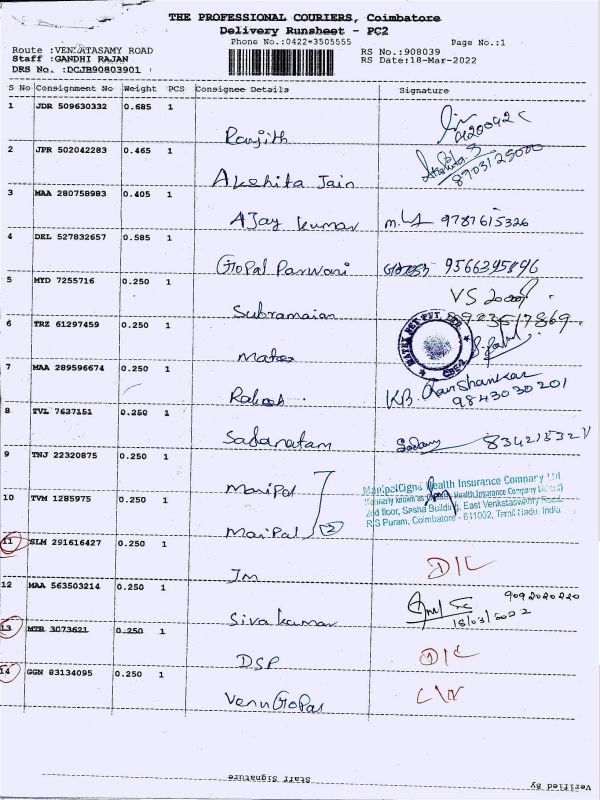 THE PROFESSIONAL COURIERS, Coimbatore
Delivery Runsheet - PC2
Phone No.:0422-3505555
Page No.:1
Route :VENKATASAMY ROAD
Staff :GANDHI RAJAN
DRS No. :DCJB90803901
RS No.:908039
RS Date:18-Mar-2022
S No Consignment No Weight PCS Consignee Details Signature
1 JDR 509630332 0.685 1
Ranjith
2 JPR 502042283 0.465 1
Akshita Jain 8903125000
3 MAA 280758983 0.405 1
AJay kumar 9787615326
4 DEL 527832657 0.585 1
GoPal Parwani 9566395896
5 MYD 7255716 0.250 1
Subramaian
6 TRZ 61297459 0.250 1
Matex
MATEX NET PVT. LTD.
CBE-2
7 MAA 289596674 0.250 1
Rakesh KB. Ravishankar
9843030201
8 TVL 7637151 0.250 1
Sadanatam
9 TNJ 22320875 0.250 1
ManiPal
ManipalCigna Health Insurance Company Ltd
10 TVM 1285975 0.250 1
2nd floor, Sasha Building, East Venkataswamy Road
R S Puram, Coimbatore - 611002, Tamil Nadu, India
ManiPal 2
11 SLM 291616427 0.250 1
Jm D/L
12 MAA 563503214 0.250 1
9092020220
Sivakumar 18/03/2022
13 MTR 3073621 0.250 1
DSP D/L
14 GGN 83134095 0.250 1
VenuGopal
Staff Signature
Verified By